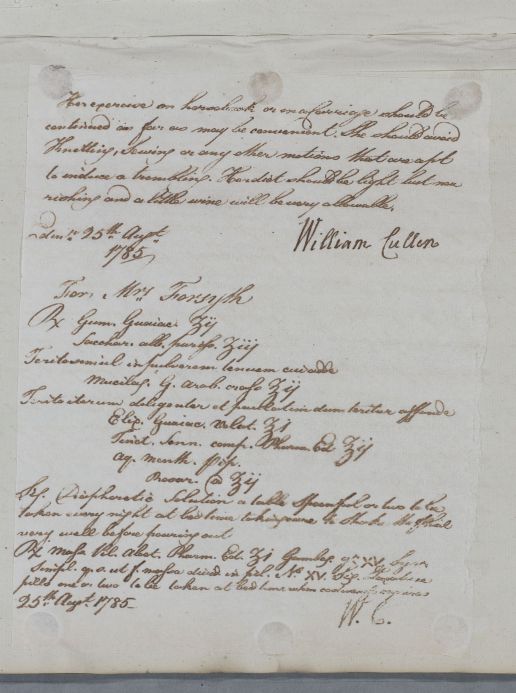 Her exercise on horseback or in a Carriage should be
continued as far as may be convenient. She should avoid
Knotting, Sewing or any other motions that are apt
to induce a trembling. Her diet should be light but nou
rishing and a little wine will be very allowable.
Edinr. 25th. Augt.
1785
William Cullen
For, Mrs Forsyth
Rx Gum. Guaiac. ʒij
Sacchar. alb. puriss. ʒiij
Terito simul in pulverem tenuem cui adde
Mucilag. G. Arab. crass. ʒij
Terito iterum diligenter et paullatim dum teritur affunde
Elix. Guaiac. Volat. ʒi
Tinct. Senn. comp. Pharm. Ed. ʒij
Aq. menth. pip.
Rosar. @ ʒij
Sig. Diaphoretic Solution a table spoonful or two to be
taken every night at bed time taking care to shake the phial
very well before pouring out
Rx Massa Pil. Aloet. Pharm. Ed. ʒi XV Syr.
Simpl. q. s. ut f. massa divid. in pil. No. XV. Sig. Laxative
pills one or two to be taken at bed time when
25th. Augt. 1785
W. C.